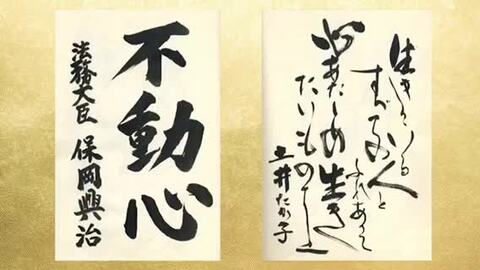 不動心
法務大臣 保岡興治
生きている
人と
ふれあって
心あた 生き
たいものです
土井たか子